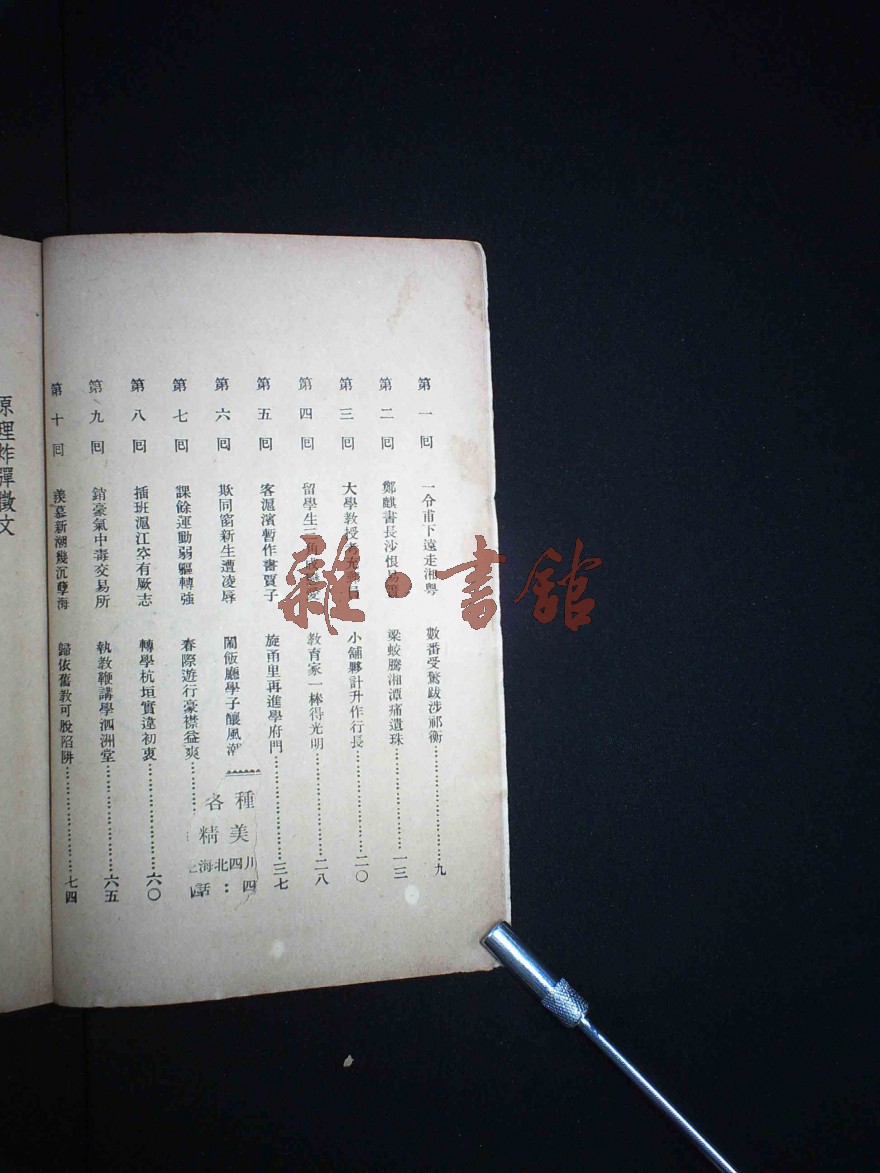 第一回 一令甫下遠走湘粵 數番受驚跋涉祁衡……九
第二回 鄭麒書長沙恨易 梁蛟騰湘潭痛遺珠……一三
第三回 大學教授 小舖夥計升作行長……二〇
第四回 留學生三角 教育家一棒得光明……二八
第五回 客滬濱暫作書賈子 旋甬里再進學府門……三七
第六回 欺同窗新生遭凌辱 鬧飯廳學子釀風潮
第七回 課餘運動弱軀轉強 春際遊行豪襟益爽……
第八回 插班滬江空有厥志 轉學杭垣實違初衷……六〇
第九回 銷豪氣中毒交易所 執教鞭講學泗洲堂……六五
第十回 羨慕新潮幾沉孽海 歸依舊教可脫陷阱……七四
各種
精美
海北四川
話：四
原理炸彈徵文
雜·書舘